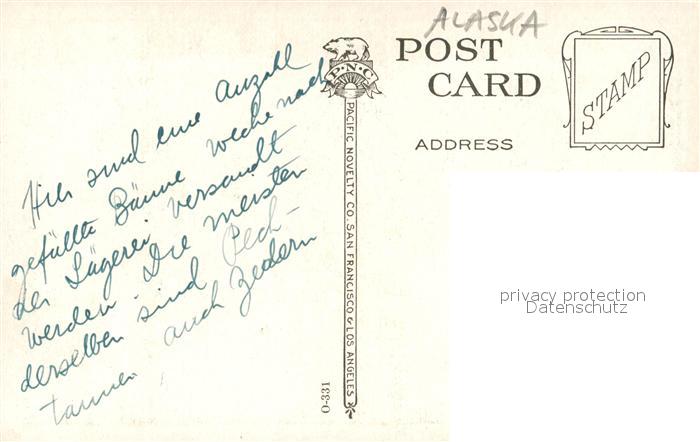 ALASKA
POST
CARD
STAMP
P.N.C.
ADDRESS
PACIFIC NOVELTY CO. SAN FRANCISCO & LOS ANGELES
O-331
Hier sind eine Anzahl
gefällte Bäume welche nach
der Sägerei versandt
werden. Die meisten
derselben sind Pech-
tannen auch Zedern
privacy protection
Datenschutz